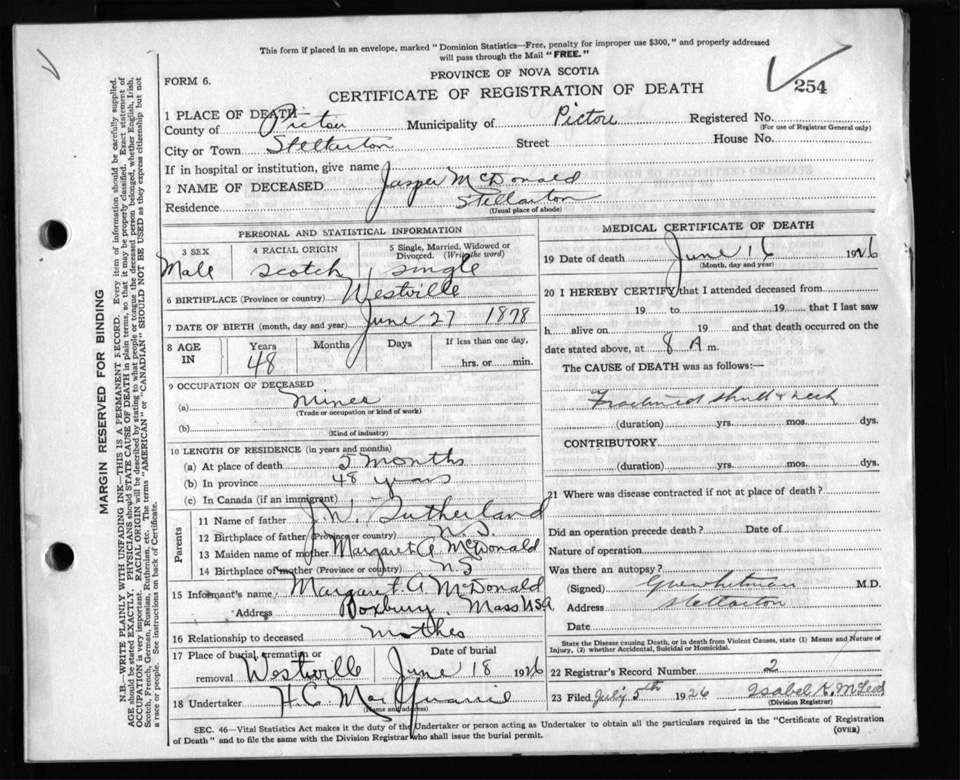 This form if placed in an envelope, marked "Dominion Statistics—Free, penalty for improper use $300," and properly addressed
will pass through the Mail "FREE."
FORM 6.
PROVINCE OF NOVA SCOTIA
CERTIFICATE OF REGISTRATION OF DEATH
254
1 PLACE OF DEATH—
County of Pictou Municipality of Pictou Registered No.
(For use of Registrar General only)
City or Town Stellarton Street House No.
If in hospital or institution, give name
2 NAME OF DECEASED Jasper McDonald
Residence Stellarton
(Usual place of abode)
PERSONAL AND STATISTICAL INFORMATION
3 SEX 4 RACIAL ORIGIN 5 Single, Married, Widowed or Divorced. (Write the word)
Male Scotch Single
6 BIRTHPLACE (Province or country) Westville
7 DATE OF BIRTH (month, day and year) June 27 1878
8 AGE IN Years Months Days If less than one day,
48 hrs. or min.
9 OCCUPATION OF DECEASED
(a) Miner
(Trade or occupation or kind of work)
(b)
(Kind of industry)
10 LENGTH OF RESIDENCE (in years and months)
(a) At place of death 5 months
(b) In province 48 years
(c) In Canada (if an immigrant)
Parents
11 Name of father J.W. Sutherland
12 Birthplace of father (Province or country) N.S.
13 Maiden name of mother Margaret A. McDonald
14 Birthplace of mother (Province or country) N.S
15 Informant's name Margaret A McDonald
Address Roxbury, Mass USA
16 Relationship to deceased Mother
17 Place of burial, cremation or removal Westville Date of burial June 18 1926
18 Undertaker H.C.
(Name and address)
MEDICAL CERTIFICATE OF DEATH
19 Date of death June 16 1926
(Month, day and year)
20 I HEREBY CERTIFY that I attended deceased from
19 to 19 that I last saw
h alive on 19 and that death occurred on the
date stated above, at 8 A m.
The CAUSE of DEATH was as follows:—
Fractured skull & neck
(duration) yrs. mos. dys.
CONTRIBUTORY
(duration) yrs. mos. dys.
21 Where was disease contracted if not at place of death?
Did an operation precede death? Date of
Nature of operation
Was there an autopsy?
(Signed) Whitman M.D.
Address Stellarton
Date
State the Disease causing Death, or in death from Violent Causes, state (1) Means and Nature of
Injury, (2) whether Accidental, Suicidal or Homicidal.
22 Registrar's Record Number 2
23 Filed July 5th 1926 Isabel K. McLeod
(Division Registrar)
SEC. 46—Vital Statistics Act makes it the duty of the Undertaker or person acting as Undertaker to obtain all the particulars required in the "Certificate of Registration
of Death" and to file the same with the Division Registrar who shall issue the burial permit.
(OVER)
MARGIN RESERVED FOR BINDING
N.B.—WRITE PLAINLY WITH UNFADING INK—THIS IS A PERMANENT RECORD. Every item of information should be carefully supplied.
AGE should be stated EXACTLY. PHYSICIANS should STATE CAUSE OF DEATH in plain terms, so that it may be properly classified. Exact statement of
OCCUPATION is very important. RACIAL ORIGIN will be described by stating to what people or tongue the deceased person belonged, whether English, Irish,
Scotch, French, German, Russian, Ruthenian, etc. The terms "AMERICAN" or "CANADIAN" SHOULD NOT BE USED as they express citizenship but not
a race or people. See instructions on back of Certificate.